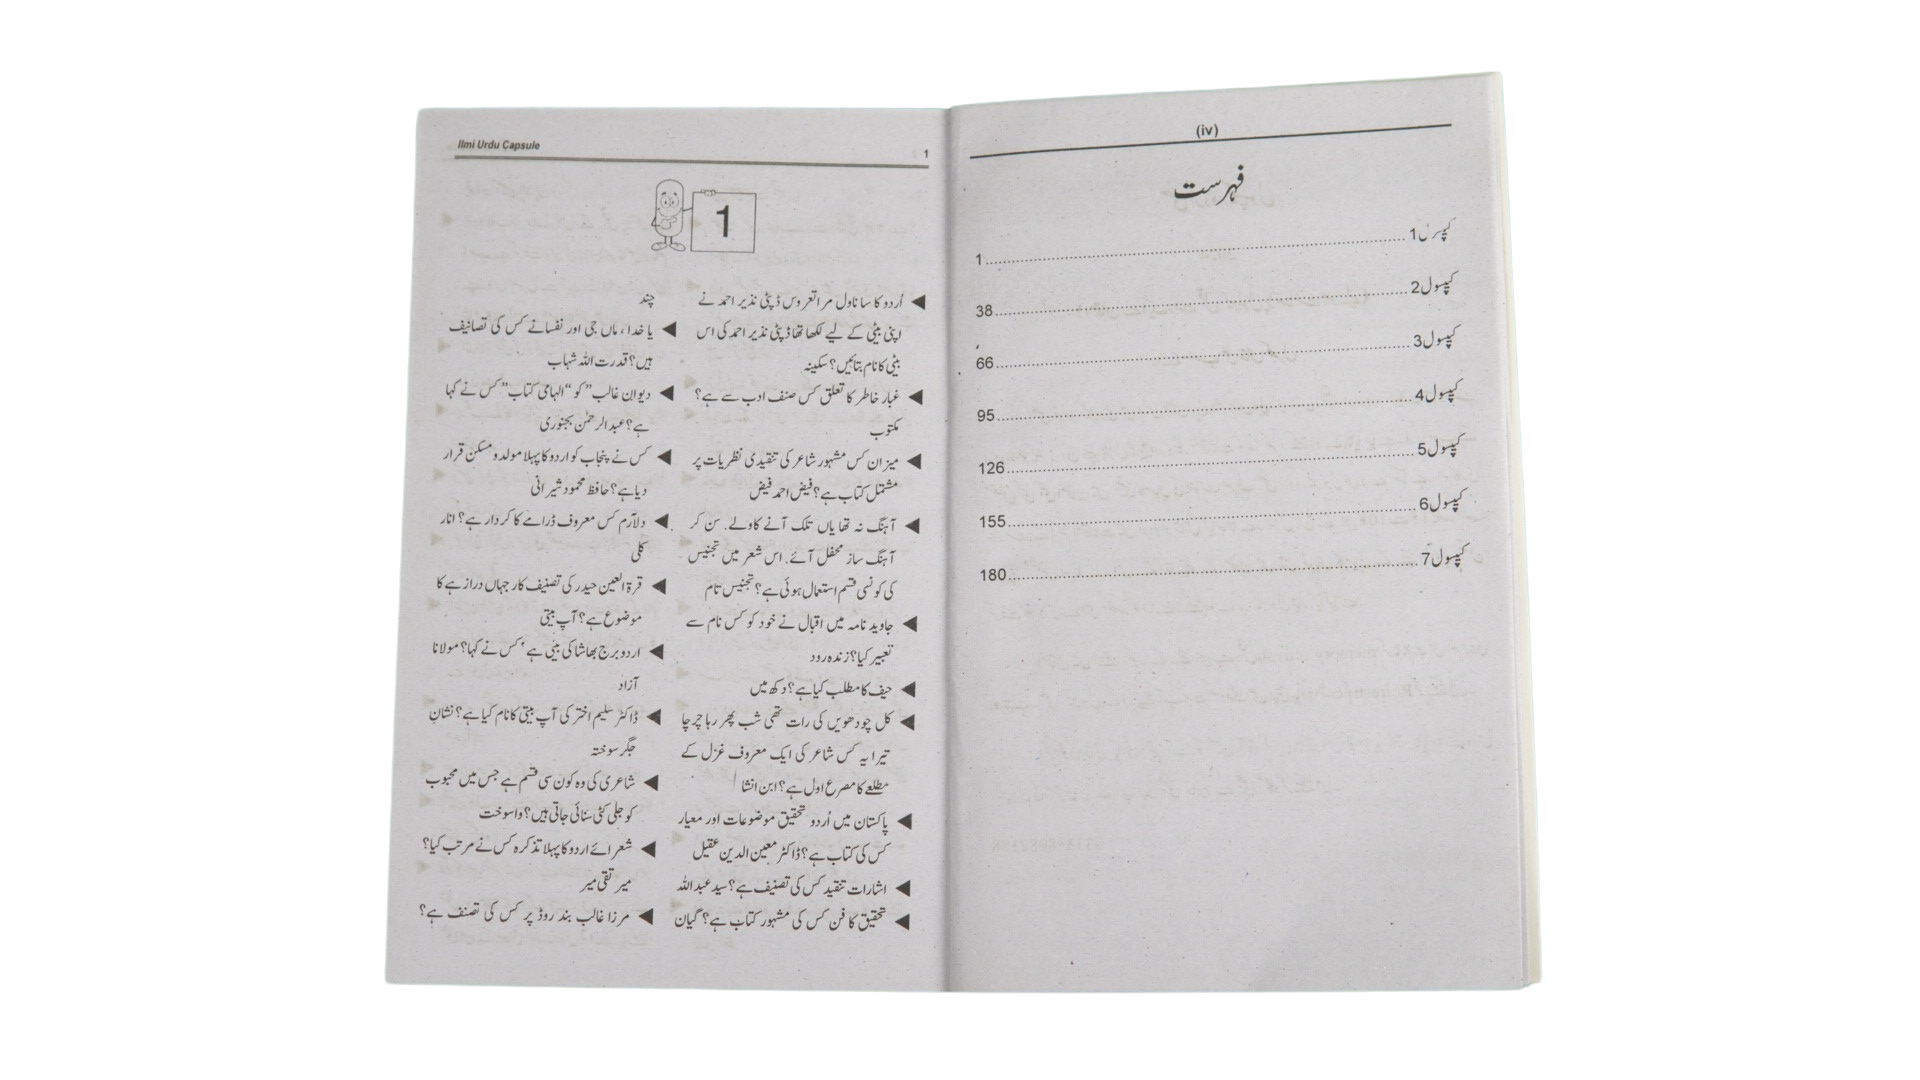 (iv)
فہرست
کیپسول 1 ........ 1
کیپسول 2 ........ 38
کیپسول 3 ........ 66
کیپسول 4 ........ 95
کیپسول 5 ........ 126
کیپسول 6 ........ 155
کیپسول 7 ........ 180
Ilmi Urdu Capsule 1
1
اُردو کا سا ناول مراتعروس ڈپٹی نذیر احمد نے
اپنی بیٹی کے لیے لکھا تھا ڈپٹی نذیر احمد کی اس
بیٹی کا نام بتائیں؟ سکینہ
غبار خاطر کا تعلق کس صنف ادب سے ہے؟
مکتوب
میزان کس مشہور شاعر کی تنقیدی نظریات پر
مشتمل کتاب ہے؟ فیض احمد فیض
آہنگ نہ تھا یاں تلک آنے کا ولے. سن کر
آہنگ ساز محفل آئے. اس شعر میں تجنیس
کی کونسی قسم استعمال ہوئی ہے؟ تجنیس تام
جاوید نامہ میں اقبال نے خود کو کس نام سے
تعبیر کیا؟ زندہ رود
حیف کا مطلب کیا ہے؟ دکھ میں
کل چودھویں کی رات تھی شب پھر رہا چرچا
تیرا یہ کس شاعر کی ایک معروف غزل کے
مطلعے کا مصرع اول ہے؟ ابن انشا
پاکستان میں اُردو تحقیق موضوعات اور معیار
کس کی کتاب ہے؟ ڈاکٹر معین الدین عقیل
اشارات تنقید کس کی تصنیف ہے؟ سید عبد اللہ
تحقیق کا فن کس کی مشہور کتاب ہے؟ گیان
چند
یا خدا، ماں جی اور نفسانے کس کی تصانیف
ہیں؟ قدرت اللہ شہاب
دیوان غالب" کو "الہامی کتاب" کس نے کہا
ہے؟ عبد الرحمٰن بجنوری
کس نے پنجاب کو اردو کا پہلا مولد و مسکن قرار
دیا ہے؟ حافظ محمود شیرانی
دلآرم کس معروف ڈرامے کا کردار ہے؟ انار
کلی
قرۃ العین حیدر کی تصنیف کار جہاں دراز ہے کا
موضوع ہے؟ آپ بیتی
اردو برج بھاشا کی بیٹی ہے' کس نے کہا؟ مولانا
آزاد
ڈاکٹر سلیم اختر کی آپ بیتی کا نام کیا ہے؟ نشانِ
جگر سوختہ
شاعری کی وہ کون سی قسم ہے جس میں محبوب
کو جلی کٹی سنائی جاتی ہیں؟ واسوخت
شعرائے اردو کا پہلا تذکرہ کس نے مرتب کیا؟
میر تقی میر
مرزا غالب بند روڈ پر کس کی تصنف ہے؟